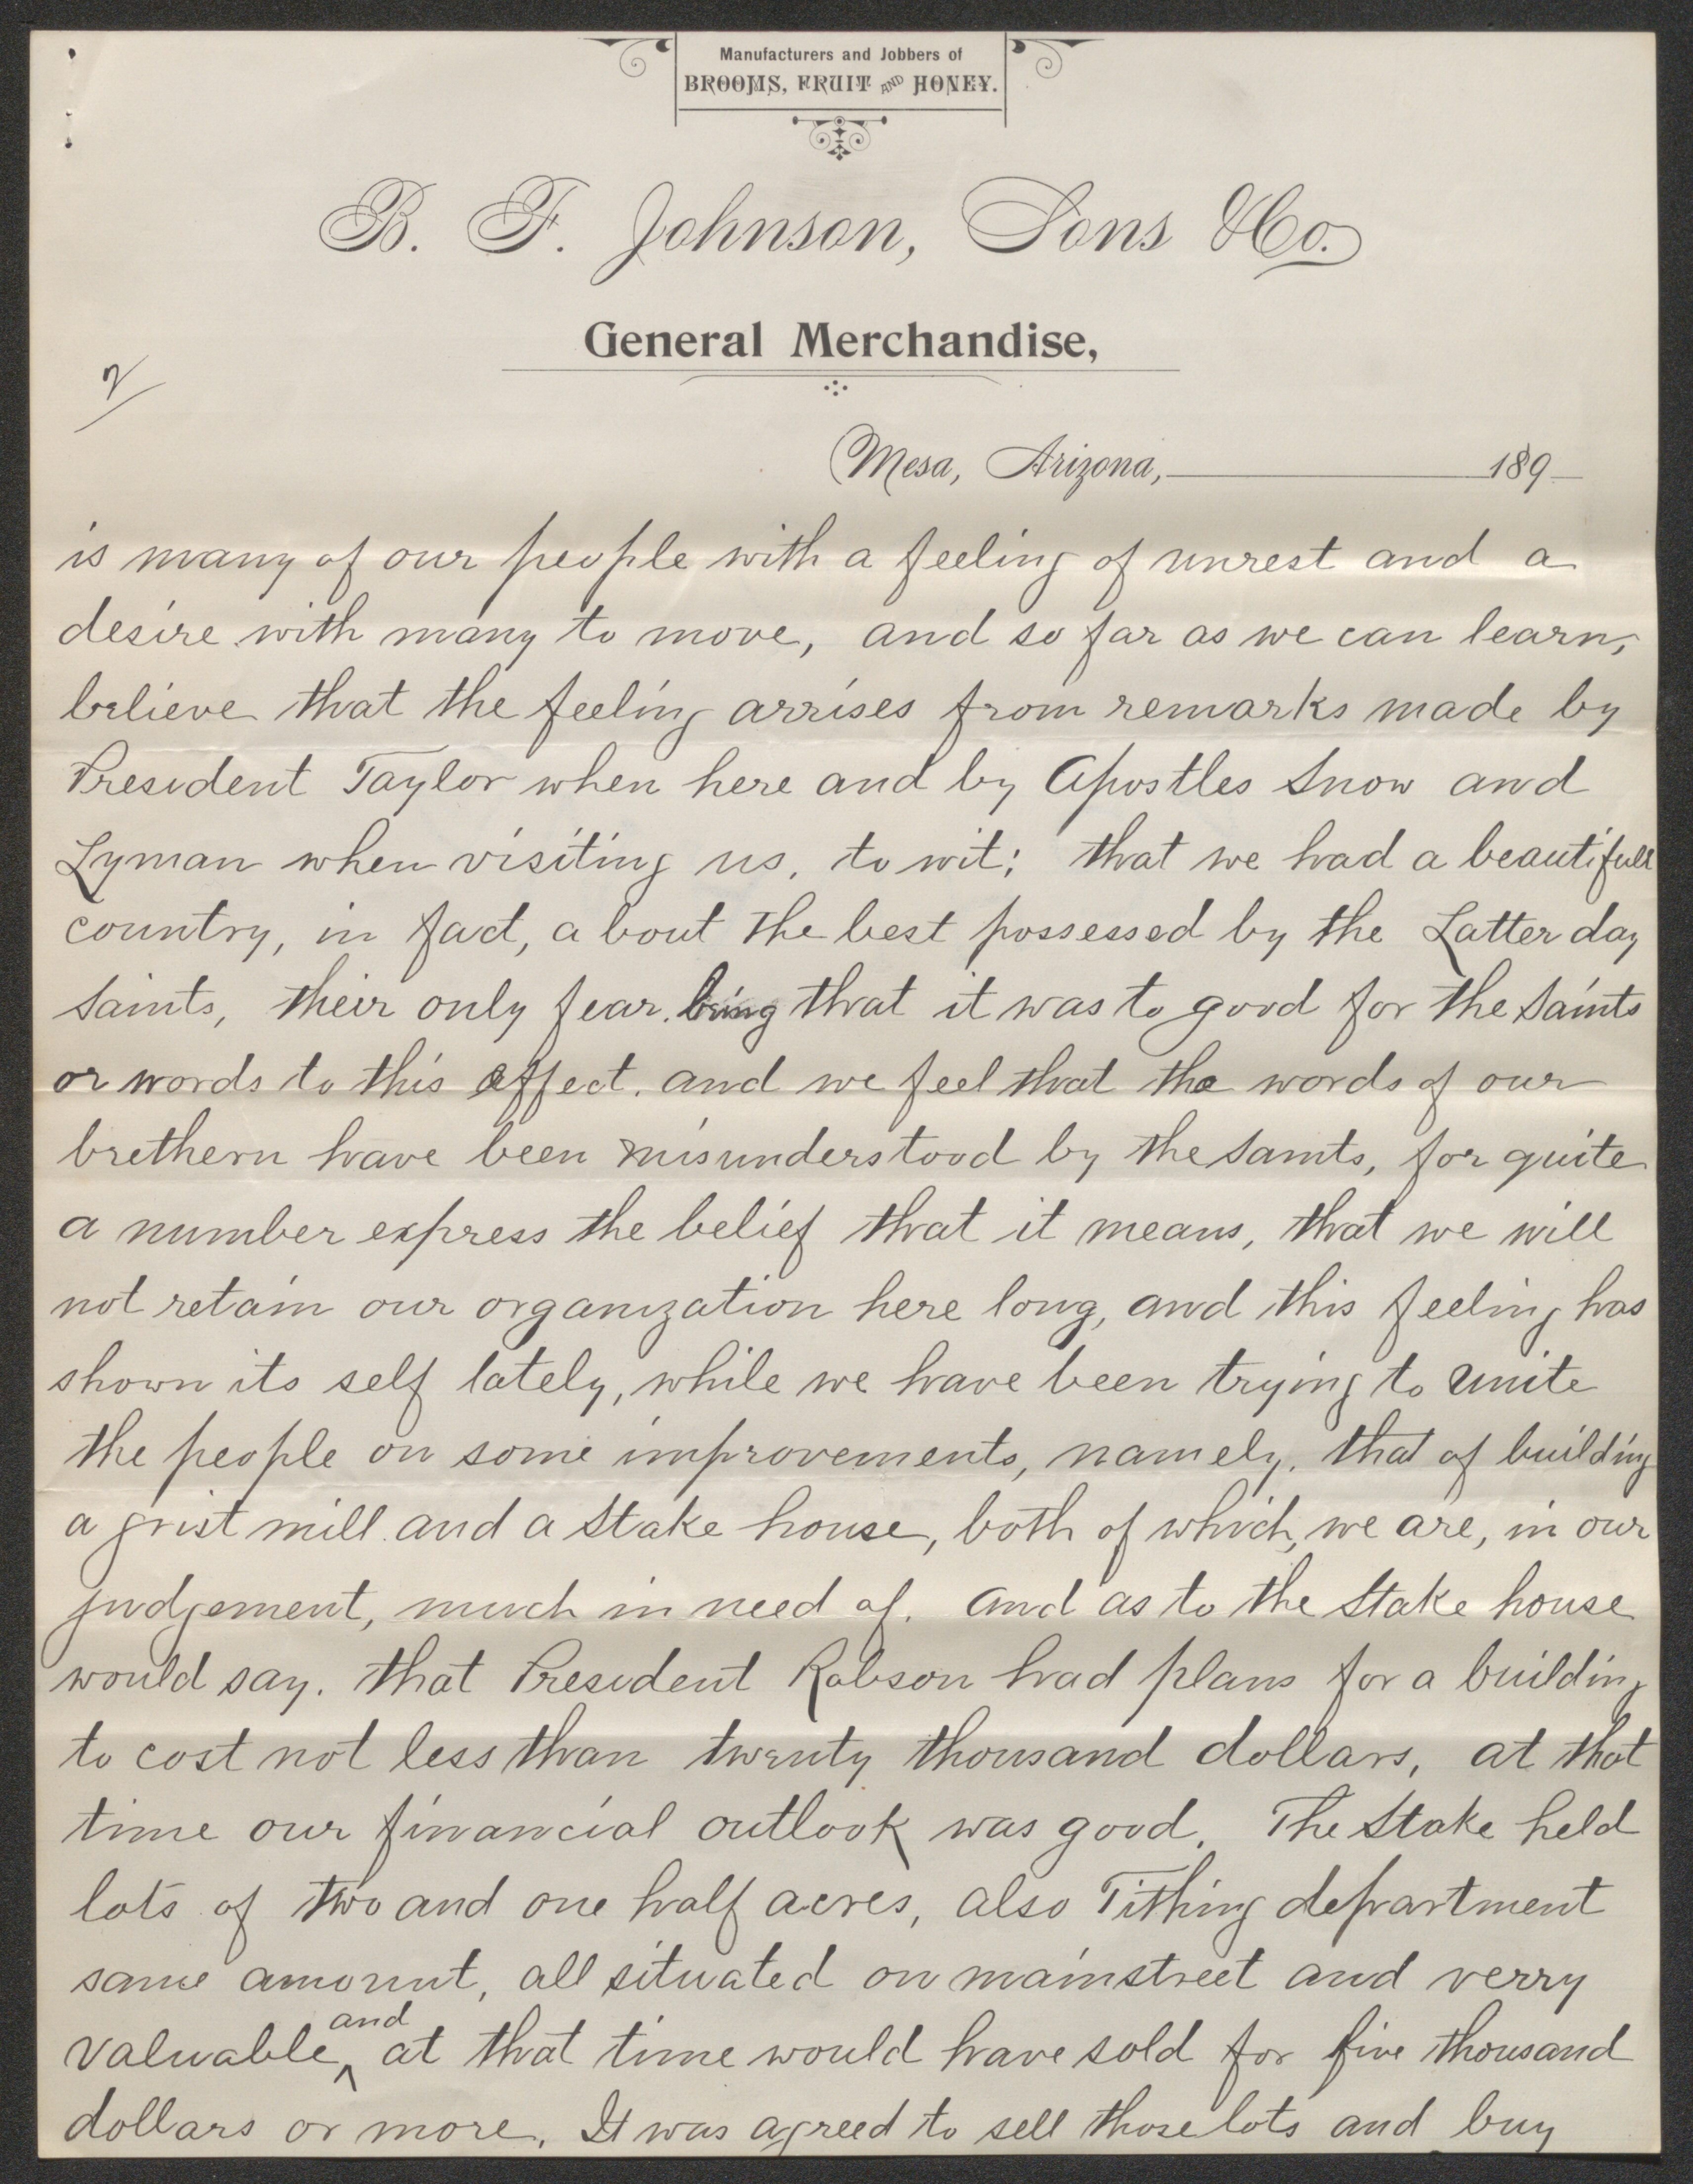 Manufacturers and Jobbers of
BROOMS, FRUIT AND HONEY.
B. F. Johnson, Sons & Co.
General Merchandise,
2/
Mesa, Arizona, 189
is many of our people with a feeling of unrest and a
desire with many to move, and so far as we can learn,
believe that the feeling arrises from remarks made by
President Taylor when here and by Apostles Snow and
Lyman when visiting us, to wit; that we had a beautifull
country, in fact, about the best possessed by the Latter day
Saints, their only fear being that it was to good for the Saints
or words to this effect. and we feel that the words of our
brethern have been misunderstood by the Saints, for quite
a number express the belief that it means, that we will
not retain our organization here long, and this feeling has
shown its self lately, while we have been trying to unite
the people on some improvements, namely, that of building
a grist mill and a Stake house, both of which, we are, in our
judgement, much in need of. and as to the Stake house
would say. that President Robson had plans for a building
to cost not less than twenty thousand dollars, at that
time our financial outlook was good. The Stake held
lots of two and one half acres, also Tithing department
same amount, all situated on mainstreet and verry
valuable, and at that time would have sold for five thousand
dollars or more. It was agreed to sell those lots and buy